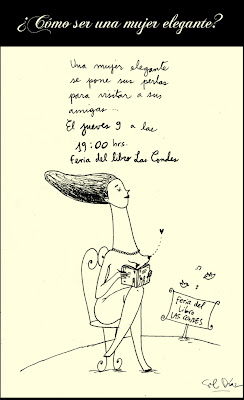 ¿Cómo ser una mujer elegante?
Una mujer elegante
se pone sus perlas
para visitar a sus
amigas...
El jueves 9 a las
19:00 hrs.
Feria del libro Las Condes
Feria del
Libro
LAS CONDES
Sol Díaz